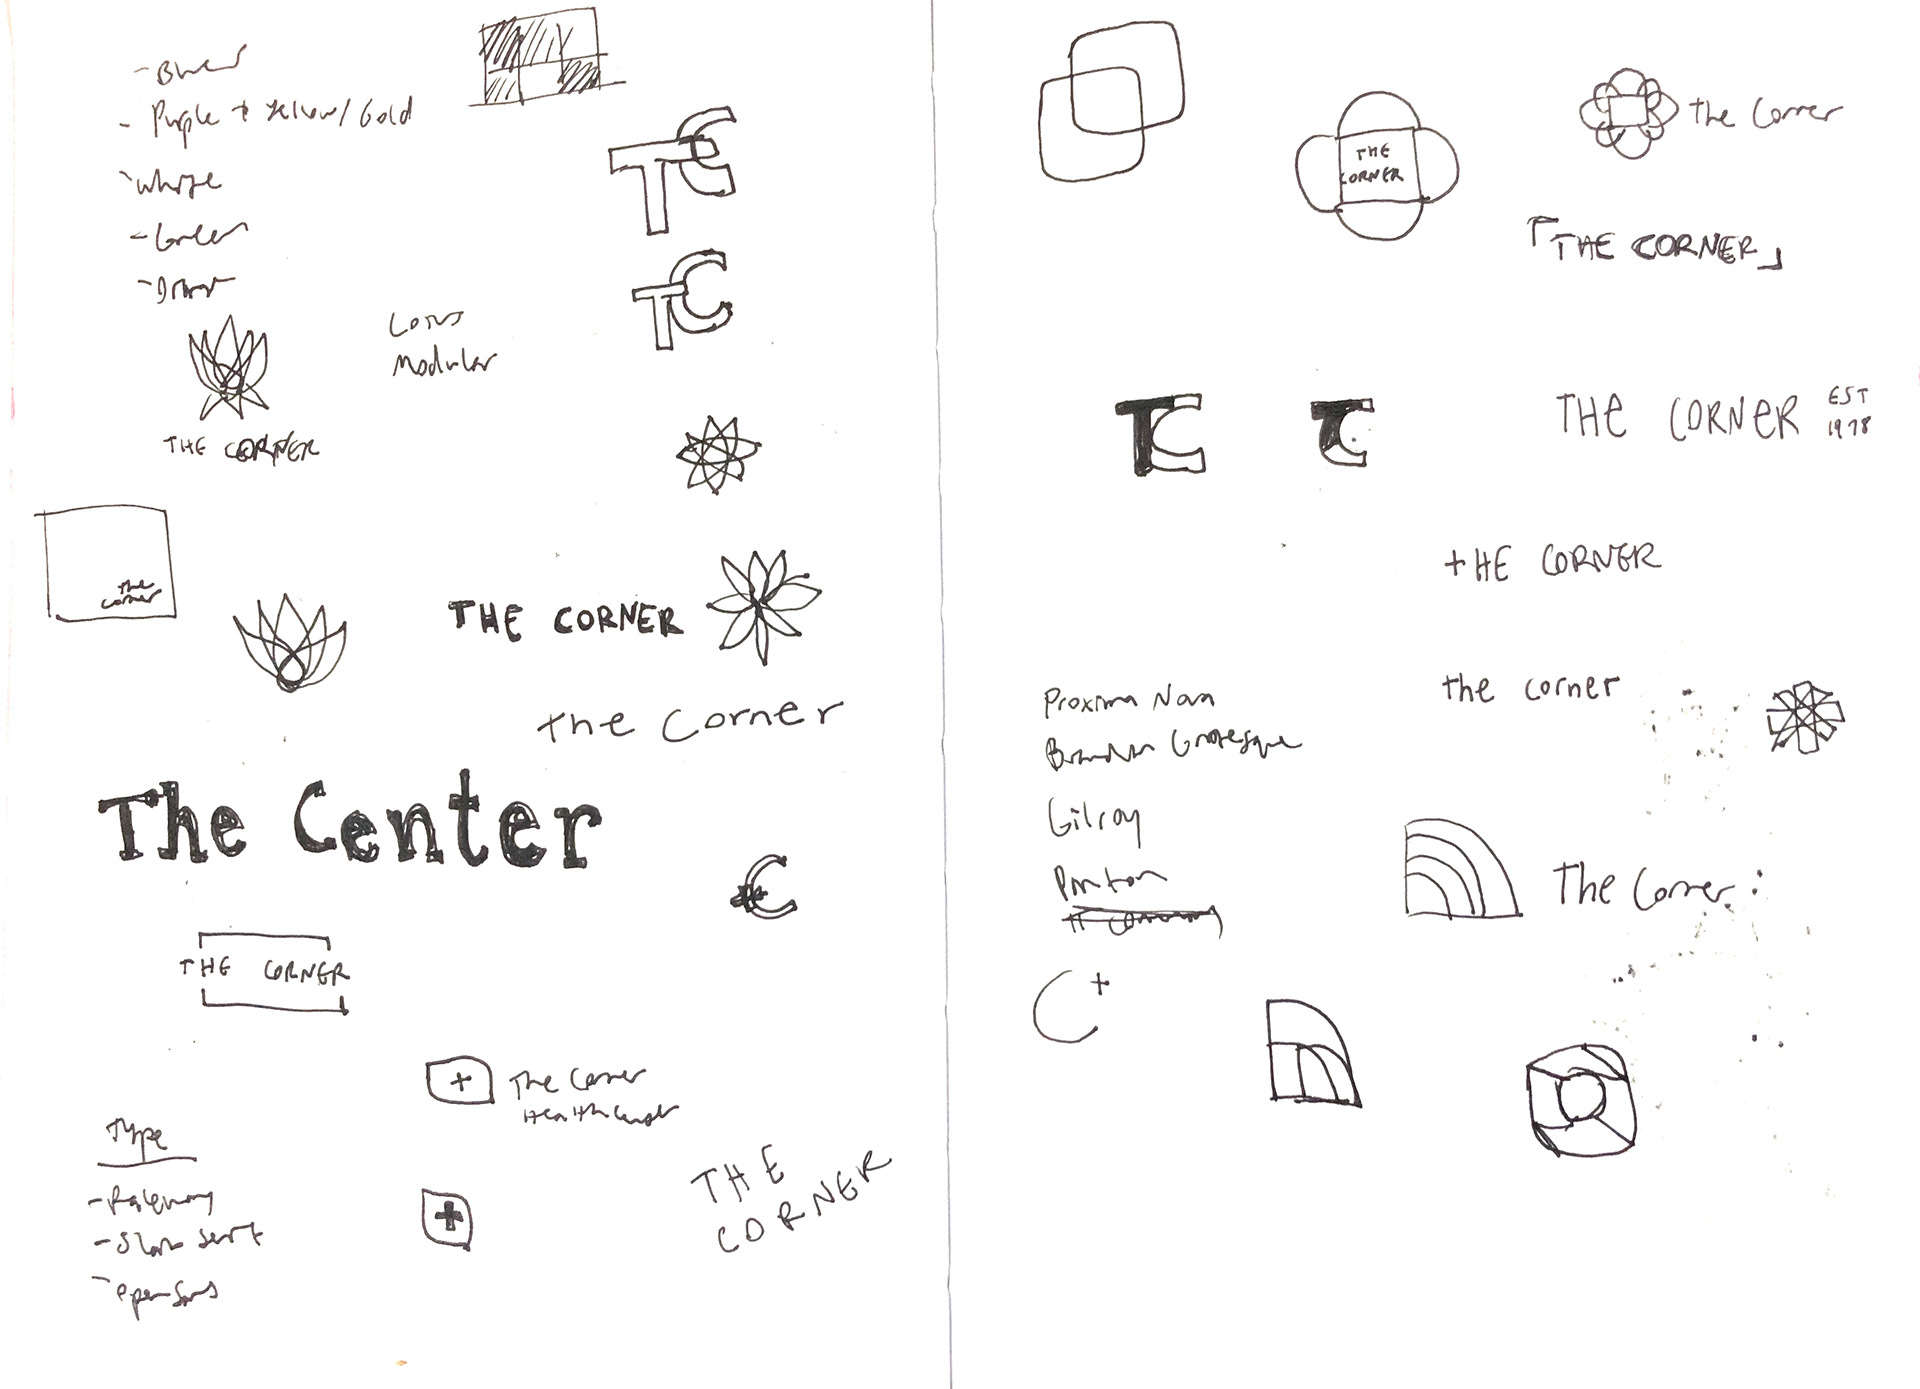 - Blues
- Purple + Yellow/Gold
- White
- Green
TC
TC
Lotus
Modular
THE CORNER
the
corner
THE CORNER
the Corner
The Center
C
THE CORNER
+ The Corner
Health Center
Type
- Raleway
- Slab Serif
- Open Sans
+
THE
CORNER
THE
CORNER
the Corner
「THE CORNER」
TC
TC
THE CORNER EST
1978
+HE CORNER
the corner
Proxima Nova
Brandon Grotesque
Gilroy
The Corner
C+